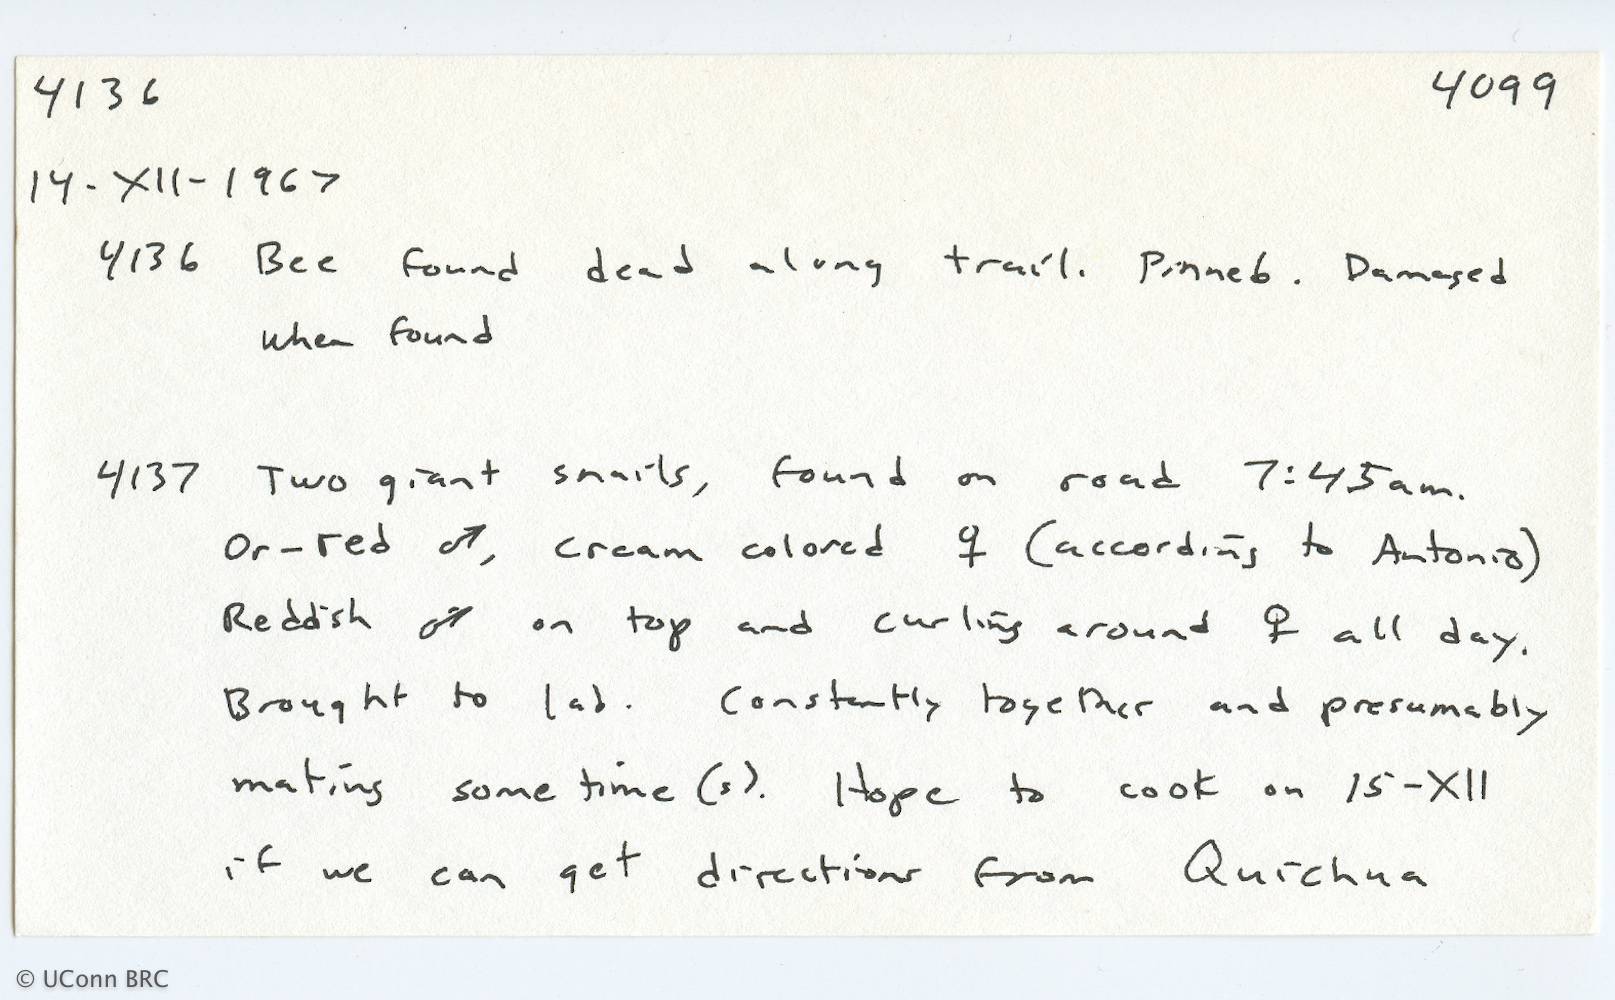 4136 4099
14-XII-1967
4136 Bee found dead along trail. Pinned. Damaged
when found
4137 Two giant snails, found on road 7:45am.
Or-red ♂, cream colored ♀ (according to Antonio)
Reddish ♂ on top and curling around ♀ all day.
Brought to lab. Constantly together and presumably
mating some time(s). Hope to cook on 15-XII
if we can get directions from Quichua
© UConn BRC